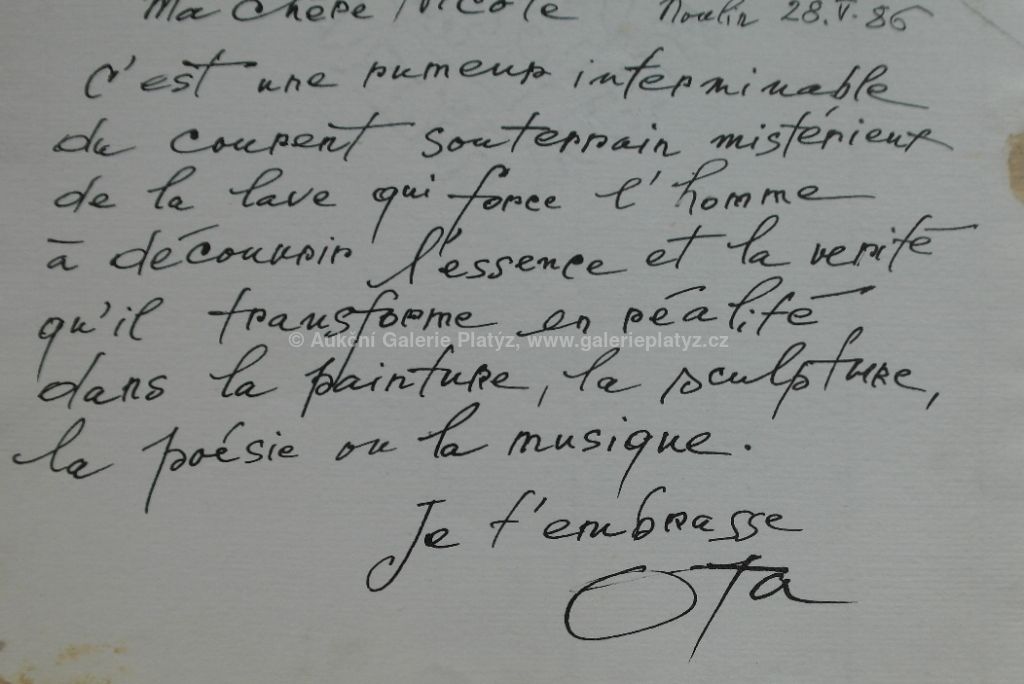 Ma chère Nicole Moulin 28.V.86
C'est une rumeur interminable
du courent souterrain mistérieux
de la lave qui force l'homme
à découvrir l'essence et la verité
qu'il transforme en réalité
© Aukční Galerie Platýz, www.galerieplatyz.cz
dans la painture, la sculpture,
la poésie ou la musique.
Je t'embrasse
Ota